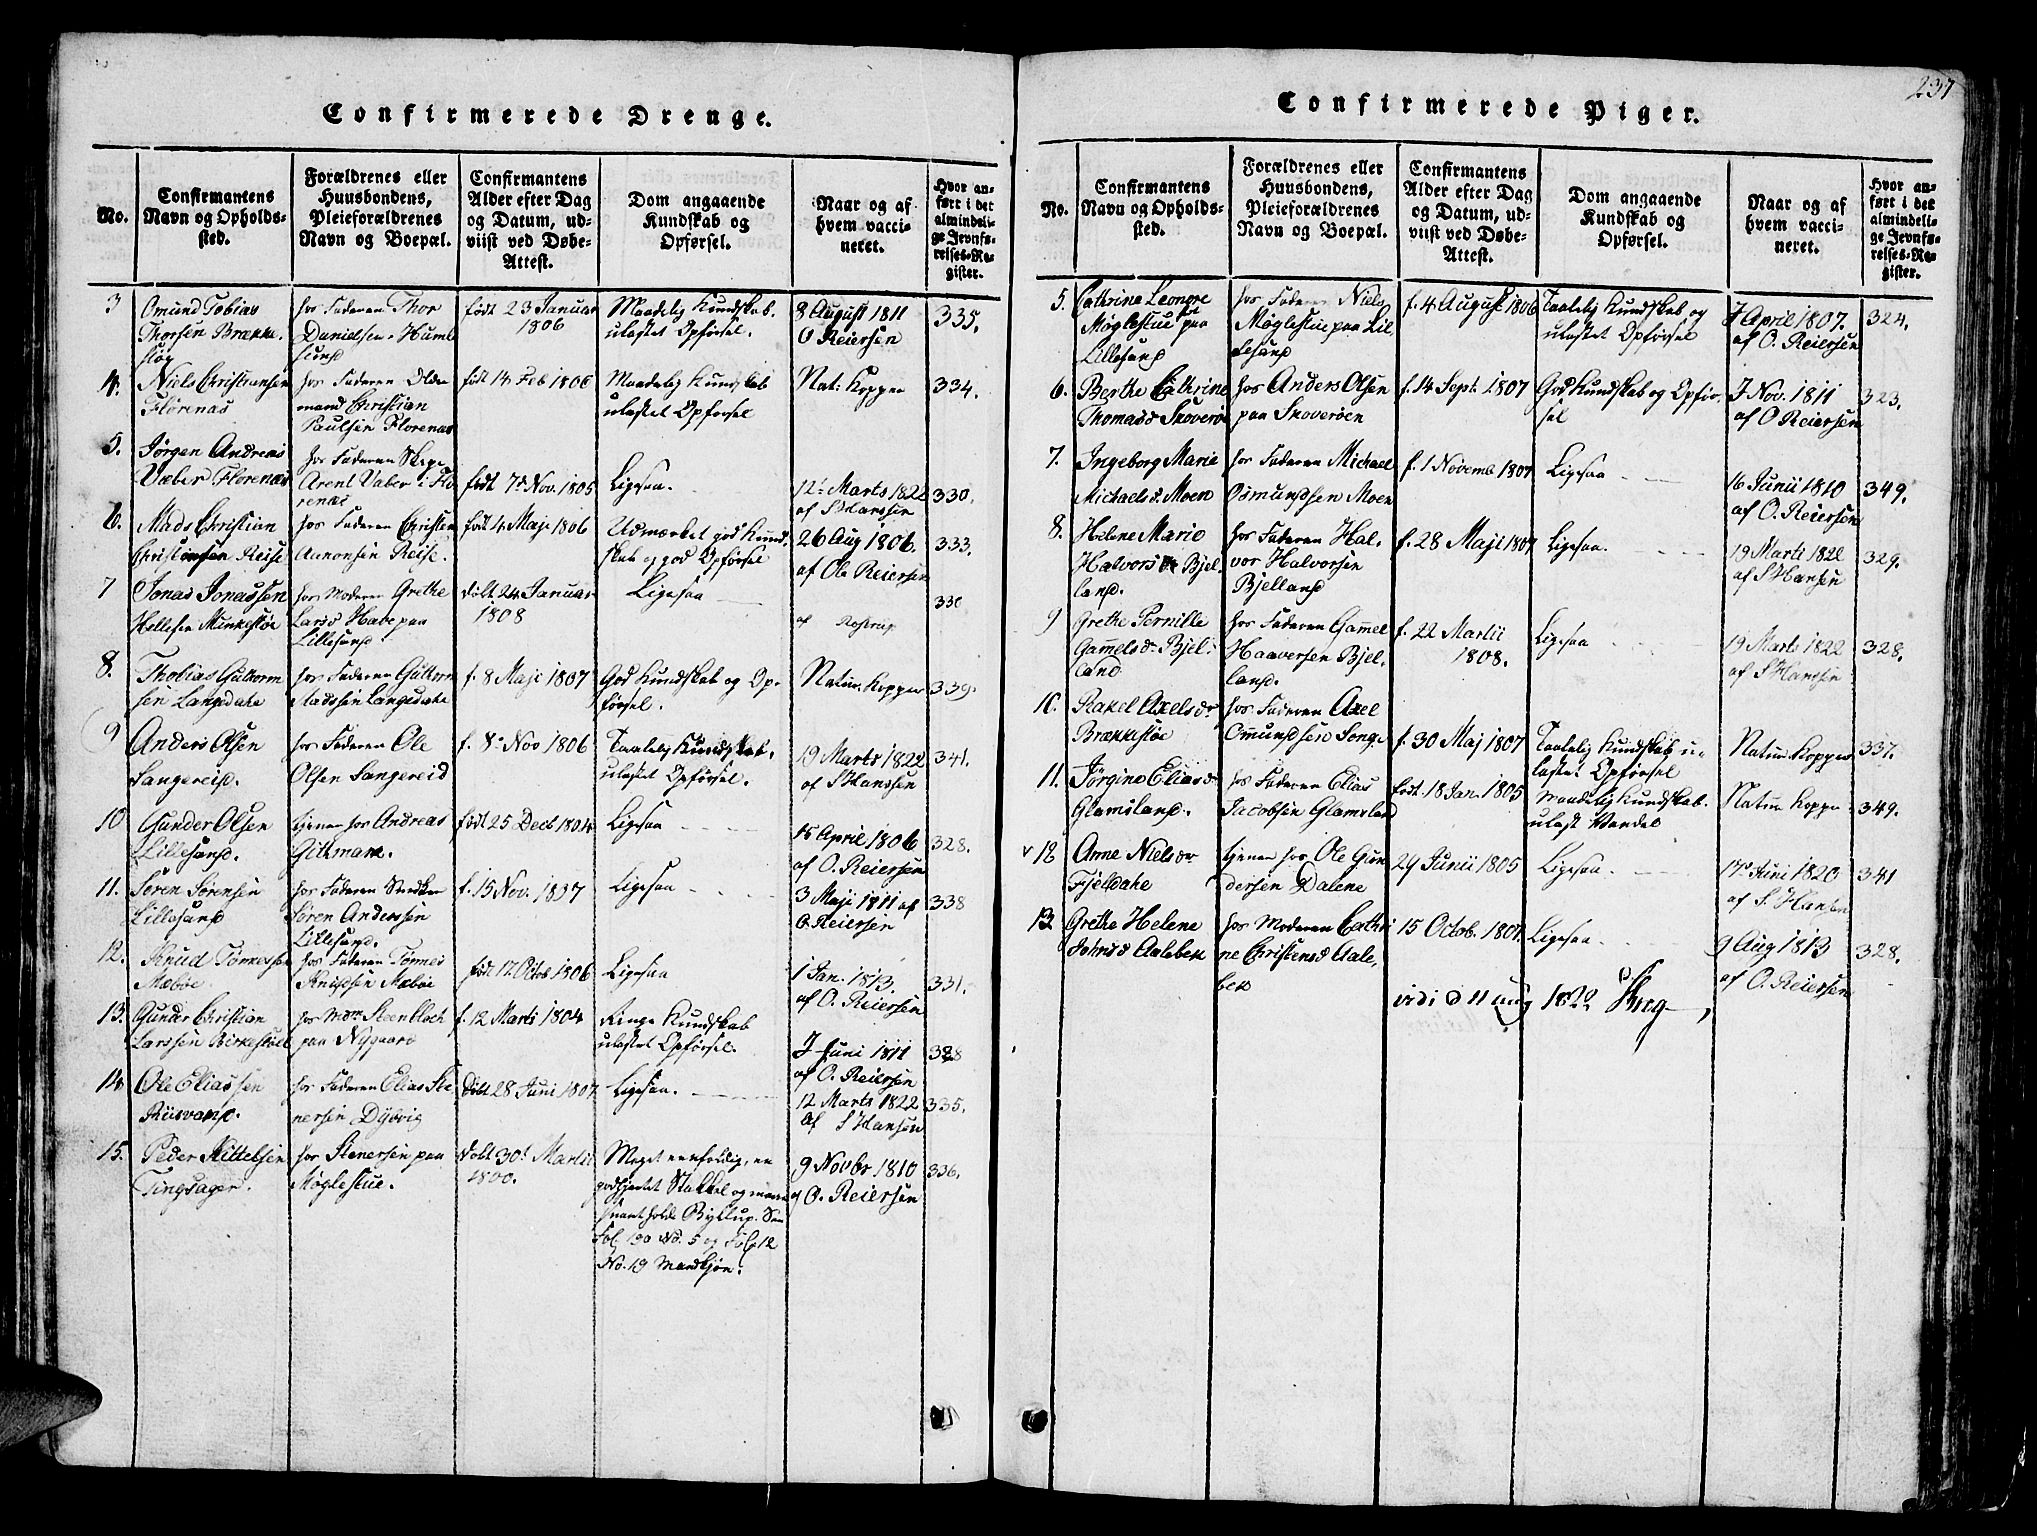 237
Confirmerede Drenge.
No.
Confirmantens
Navn og Opholds-
sted.
Forældrenes eller
Huusbondens,
Pleieforældrenes
Navn og Boepæl.
Confirmantens
Alder efter Dag
og Datum, ud-
viist ved Døbe-
Attest.
Dom angaaende
Kundskab og
Opførsel.
Naar og af
hvem vacci-
neret.
Hvor an-
ført i det
almindeli-
ge Jevnfø-
relses-Re-
gister.
3
Omund Tobias
Thorsen Brække-
støe
hos Faderen Thor
Danielsen Humle
sund
født 23 Januar
1806
Maadelig Kundskab.
ulastet Opførsel.
8 August 1811
O Reiersen
335.
4.
Niels Christiansen
Florenæs
hos Faderen Olde
mand Christian
Paulsen Florenæs
født 14 Feb 1806
Maadelig Kundskab
ulastet Opførsel
Nat: Kopper
334.
5.
Jørgen Andreas
Væber Florenæs
hos Faderen
Arent Væber i Flo
renæs
født 7d Nov. 1805
Ligesaa.
12te Marts 1822
af S Hanssen
330.
6.
Mads Christian
Christensen Reise
hos Faderen Christen
Aanonsen Reise.
født 4 Maji 1806
Udmærket god Kund
skab og god Opførsel
26 Aug 1806.
af Ole Reiersen
333.
7
Jonas Jonassen
Hellesen Munkestøe
hos Moderen Grethe
Larsd Habe paa
Lillesand
døbt 24 Januar
1808
Ligesaa
af Rostrup
330
8.
Thobias Guttorm
sen Langedahe
hos Faderen Guttorm
Madssen Langedahe
f. 8 Maji 1807
God Kundskab og Op-
førsel.
Natur. Kopper
339.
9
Anders Olsen
Sangereid.
hos Faderen Ole
Olsen Sangereid
f. 8de Nov 1806
Taalelig Kundskab.
ulastet Opførsel.
19 Marts 1822
af S Hanssen
341.
10
Gunder Olsen
Lillesand.
tjener hos Andreas
Githmark.
født 25 Decb 1804
Ligesaa
15 April 1806
af O. Reiersen
328.
11.
Søren Sørensen
Lillesand
hos Faderen
Søren Andersen
Lillesand.
f. 15 Nov. 1837
Ligesaa
3 Maji 1811 af
O Reiersen
338
12.
Knud Tønnessen
Mæbøe.
hos Faderen Tønnes
Knudsen Mæbøe
født 17 Octob 1806
Ligesaa
1 Jan. 1813.
af O. Reiersen
331.
13.
Gunder Christian
Larssen Birkestøel
hos Steenbloch
paa Nygaard
f. 12 Marti 1804
Ringe Kundskab
ulastet Opførsel.
7 Juni 1811
af O. Reiersen
328
14
Ole Eliassen
Riisvand.
hos Faderen Elias Ste
nersen Dybvig
Døbt 28 Juni 1807
Ligesaa.
12 Marts 1822
af S Hansen
335.
15.
Peder Kittelsen
Tingsager.
hos Stenersen paa
Møglestue.
døbt 30t Martii
1800.
Meget eenfoldig, en
godhjertet Stakkel og
Byklup. See
Fol. 130 No. 5 og Fol 12
No. 19 Mandkjøn.
9 Novbr 1810
af O. Reiersen
336.
Confirmerede Piger.
No.
Confirmantens
Navn og Opholds-
sted.
Forældrenes eller
Huusbondens,
Pleieforældrenes
Navn og Boepæl.
Confirmantens
Alder efter Dag
og Datum, ud-
viist ved Døbe-
Attest.
Dom angaaende
Kundskab og
Opførsel.
Naar og af
hvem vacci-
neret.
Hvor an-
ført i det
almindeli-
ge Jevnfø-
relses-Re-
gister.
5.
Cathrine Leonore
Møglestue paa
Lillesand
hos Faderen Niels
Møglestue paa Lil-
lesand
f. 4 August 1806
Taalelig Kundskab og
ulastet Opførsel
7 April 1807.
af O. Reiersen
324.
6.
Berthe Cathrine
Thomasd Skoverøe
hos Anders Olsen
paa Skoverøen
f. 14 Sept. 1807
God Kundskab og Opfør-
sel
7 Nov. 1811
af O Reiersen
323.
7.
Ingeborg Marie
Michaelsd. Moen
hos Faderen Michael
Osmundsen Moen
f. 1 Novemb 1807
Ligesaa
16 Junii 1810
af O. Reiersen
349.
8.
Helene Marie
Halvorsdr Bjel-
land.
hos Faderen Hal-
vor Halvorsen
Bjelland
f. 28 Maji 1807
Ligesaa.
19 Marti 1822
af S Hansen
329.
9
Grethe Pernille
Gamelsdr Bjel-
land
hos Faderen Gamel
Haaversen Bjel-
land.
f. 22 Martii
1808.
Ligesaa
19 Marts 1822
af S Hanssen
328.
10.
Rakel Axelsdr
Brækkestøe
hos Faderen Axel
Omundsen Songe
f. 30 Maj 1807
Taalelig Kundskab u-
lastet Opførsel
Natur Kopper
337.
11.
Jørgine Eliasdr
Glamsland.
hos Faderen Elias
Jacobsen Glamsland
født. 18 Jan. 1805
Maadelig Kundskab.
ulast Vandel
Natur Kopper
349.
v 12
Anne Nielsdr
Fjeldahe
tjener hos Ole Gun
dersen Dalene
29 Junii 1805
Ligesaa.
17d Juni 1820
af S. Hansen
341
13
Grethe Helene
Johnsd Aalebek
hos Moderen Cathri
ne Christensd Aale-
bek
15 Octob. 1807.
Ligesaa.
9 Aug 1813
af O. Reiersen
328.
vidi d 11 Aug 1822